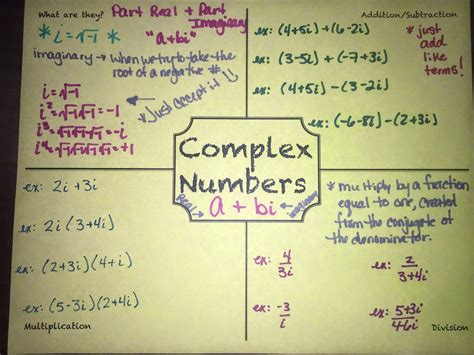 What are they? Part Real + Part
Imaginary
"a+bi"
* i = √-1 *
imaginary → when we try to take the
root of a negative #
i = √-1
i² = √-1√-1 = -1
i³ = √-1√-1√-1 = -i
i⁴ = √-1√-1√-1√-1 = +1
*Just accept it!
Addition/Subtraction
ex: (4+5i)+(6-2i)
ex: (3-5i)+(-7+3i)
ex: (4+5i)-(3-2i)
ex: (-6-8i)-(2+3i)
* just
add
like
terms!
Complex
Numbers
Real
a + bi
imaginary
ex: 2i + 3i
ex: 2i(3+4i)
ex: (2+3i)(4+i)
ex: (5-3i)(2+4i)
Multiplication
* multiply by a fraction
equal to one, created
from the conjugate of
the denominator.
ex: 4/3i
ex: 2/3+4i
ex: -3/i
ex: 5+3i/4-6i
Division